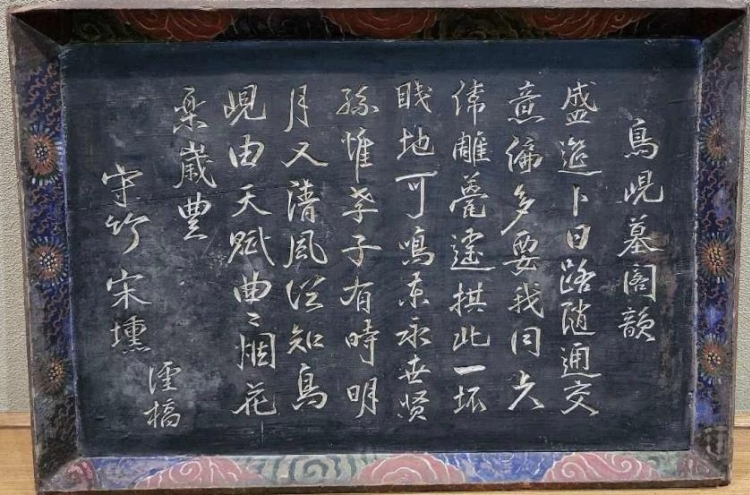 鳥峴墓閣韻
盛筵卜日路随通交
意偏多要我同
甍拱此一坏
賤地可鳴東永世賢
孫惟孝子有時明
月又清風從知鳥
峴由天賦曲〻烟花
楽歲豊
守竹宋壎
橋